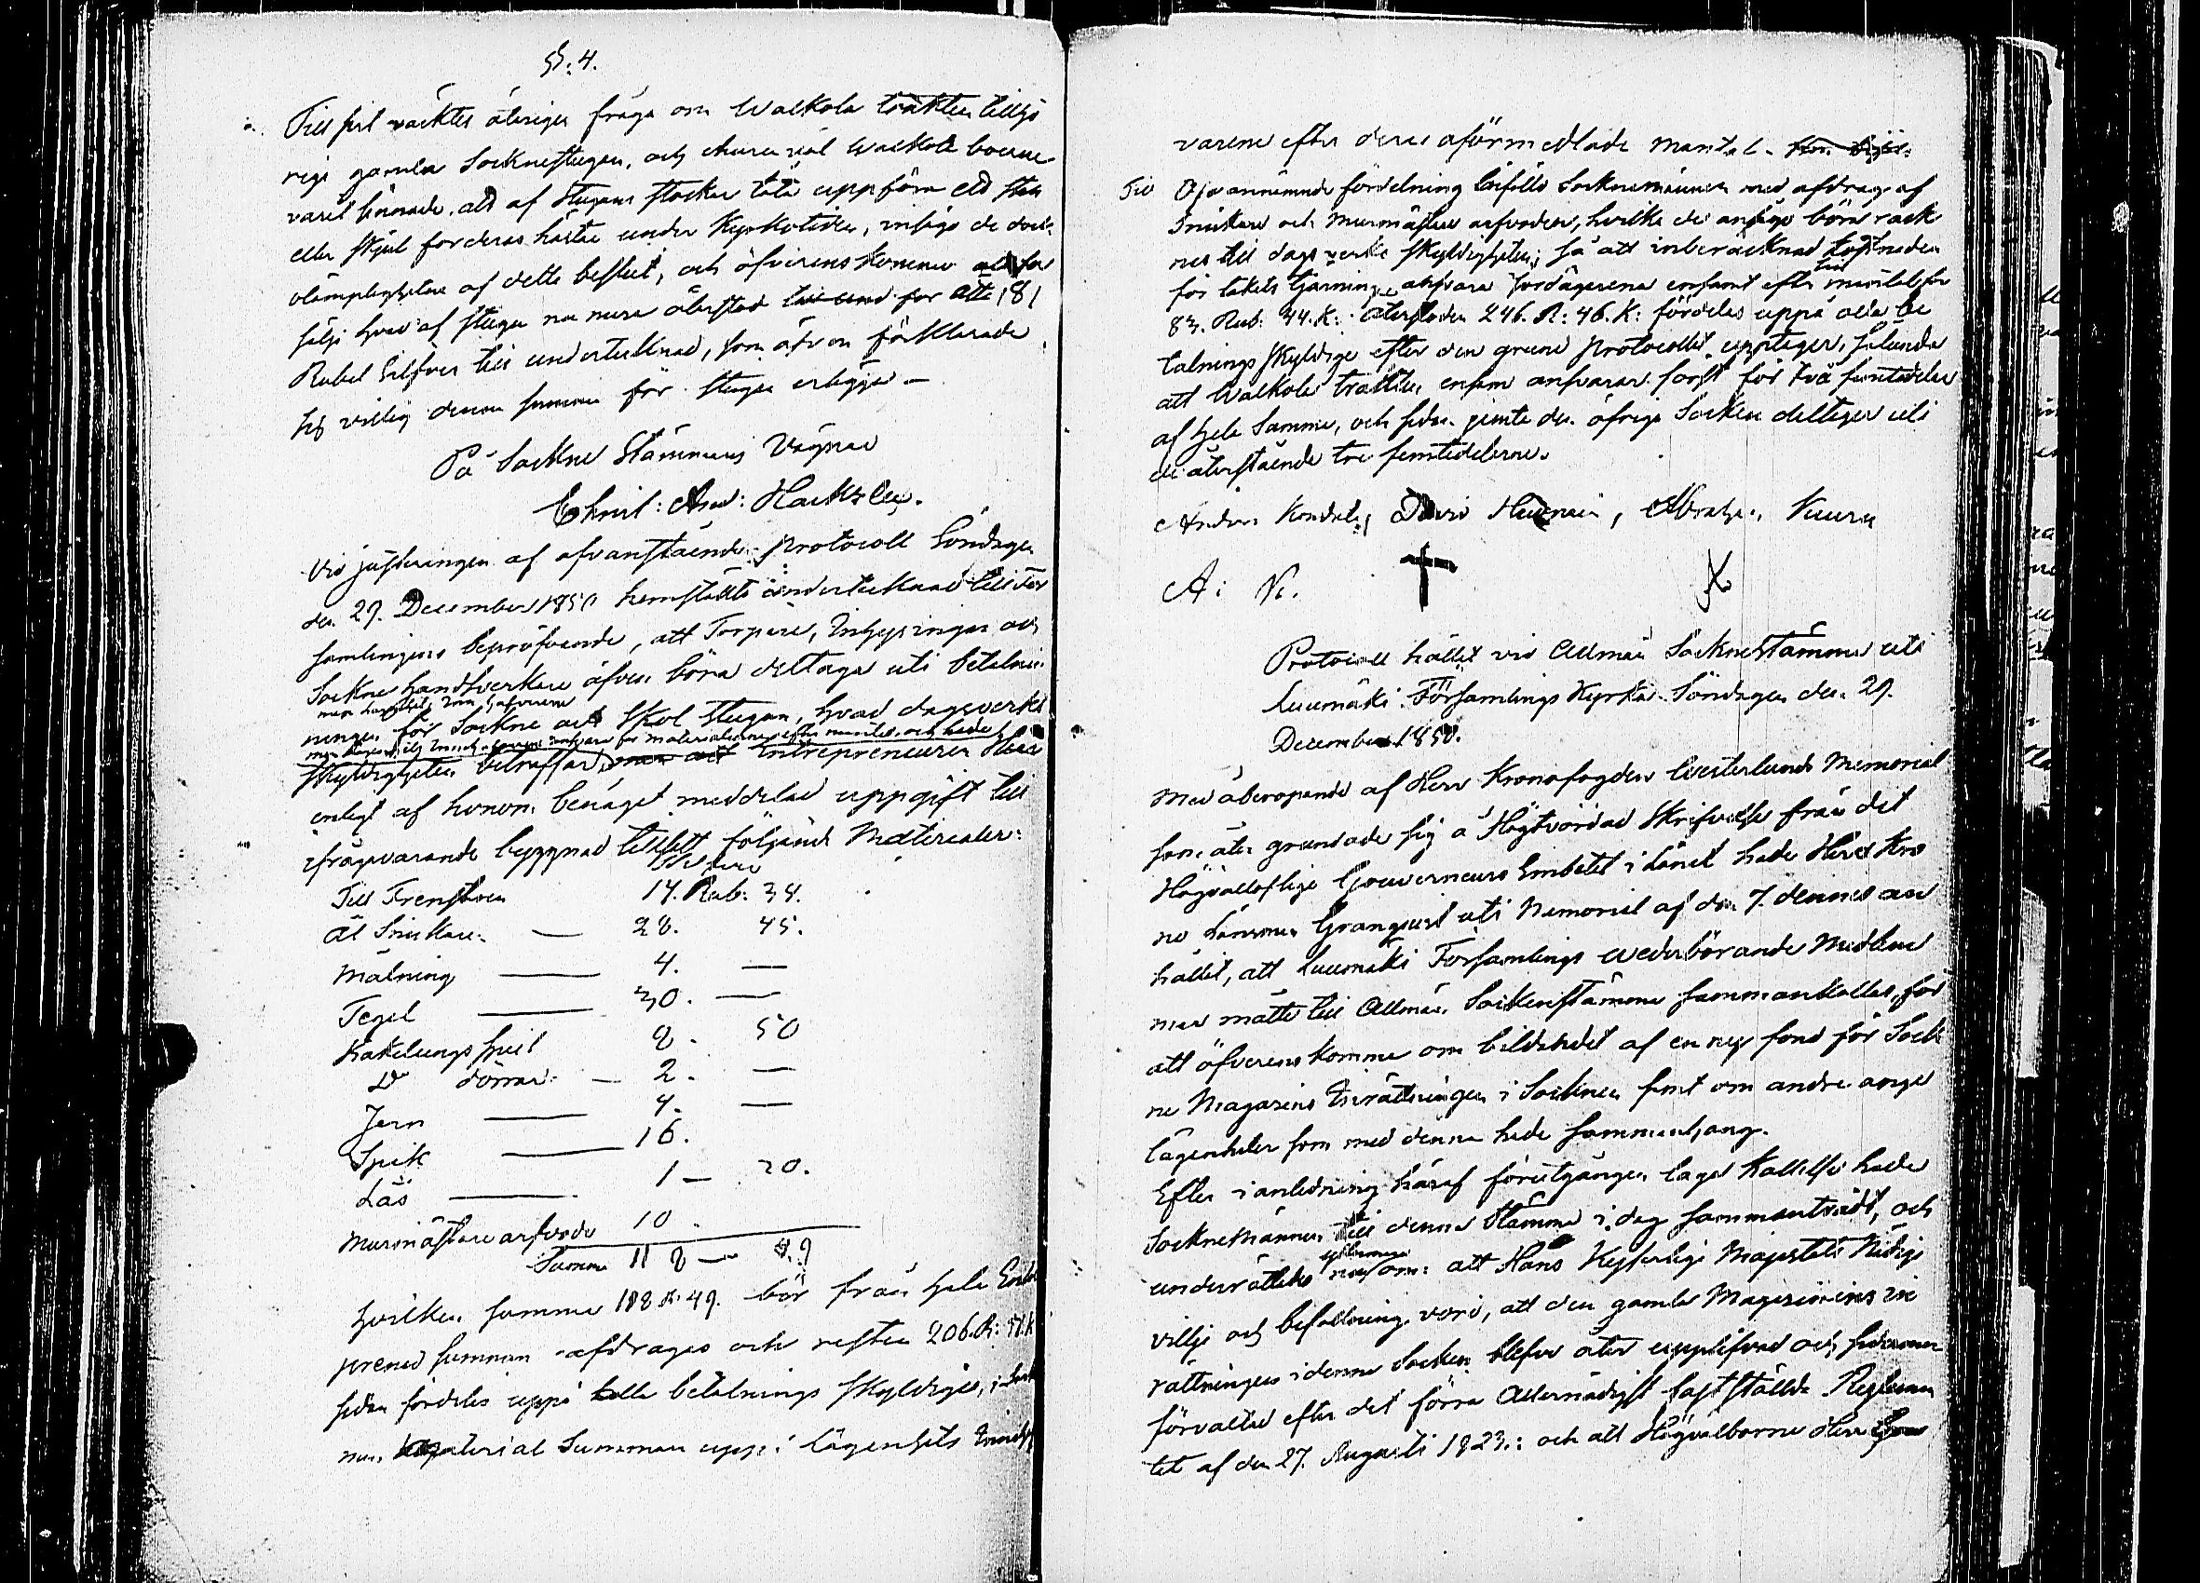 §: 4.
Till sist väcktes återigen fråga om Walkola trakten tillhö
riga gamla Socknestugan, och ehuru väl Walkola boerne
varit sinnade, att af Stugans stockar låta uppföra ett stall
eller skjul för deras hästar under Kyrkotiden, insågo de dock
olämpligheten af detta beslut, och öfverenskommo att för
sälja hvad af stugan nu mera återstod för åtta /8/
Rubel Silfver till undertecknad, som äfven förklarade
sig villig denna summa för stugan erlägga –
På Sockne Stämmans Vägnar
And: Hacksley.
Vid justeringen af ofvanstående Protocoll Söndagen
den 29. December 1850 hemställte undertecknad till För
samlingens bepröfvande, att Torpare, Inhysingar och
Sockne handtverkare äfven böra deltaga uti betalnin
ningen för Sockne och Skol Stugan, hvad dagsverks
för materialierne efter mantal, och hade
skyldigheten beträffar Entrepreneuren
enligt af honom benäget meddelad uppgift till
ifrågavarande byggnad tillsatt följande Materialer:
Till Frenstren 14. Rub: 34.
åt Snickare — 28. 45.
Målning — 4. —
Tegel — 30. —
Kakelungs spiel 8. 50
D° dörrar — 2. —
Jern — 4. —
Spik — 16.
Lås — 1 — 20.
Murmästare arfvode 10.
Summa 118 — 49
hvilken summa 118 R. 49. bör från hela Entre
prenad summan afdragas och resten 206. R: 51. K
sedan fördelas uppå alla betalnings skyldige, i Sock
nen, Material Summan uppå lägenhets
varene efter deras oförmedlade mantal.
Till Ofvannämnde fördelning biföllo Socknemännen med afdrag af
Snickare och Murmästare arfvoden, hvilka de ansågo böra räck
nas till dagsverks skyldigheten, så att inberäcknad kostnaden
för takets tjärning ansvara Jordägarena ensamt efter mantal för
83. Rub: 44. K: återstoden 246. R: 46. K: fördelas uppå alla be
talnings skyldige efter den grund Protocollet upptager, sålunda
att Walkola trakten ensam ansvarar först för två femtedelar
af hela Summan, och sedan jemte den öfriga Socken deltager uti
de återstående tre femtedelarne.
Anders Kondal, David , Abraham Kuura
A: K.
Protocoll hållet vid Allmän Sockne Stämma uti
Luumäki Församlings Kyrka Söndagen den 29.
December 1850.
Med åberopande af Herr Kronofogden Westerlunds Memorial
som åter grundade sig å Högtvördad Skrifvelse från det
Högvällofliga Gouverneurs Embetet i Länet hade Herr Kro
no Länsman Granqvist uti Memorial af den 7. dennes an
hållit, att Luumäki Församlings wederbörande Medlem
mar måtte till Allmän Sockenstämma sammankallas, för
att öfverenskomma om bildandet af en ny fond för Sock
ne Magasins Inrättningen i Socknen samt om andra ange
lägenheter som med denna hade sammanhang.
Efter i anledning häraf förutgången laga Kallelse hade
Socknemännen till denna Stämma i dag sammanträdt, och
underättades om: att Hans Kejserliga Majestäts Nådiga
vilja och befallning vore, att den gamla Magasins in
rättningen i denna Socken blefve åter upplifvad och sedermera
förvaltad efter det förra Allernådigst fastställda Reglemen
tet af den 27. Augusti 1823.: och att Högvälborne Herr